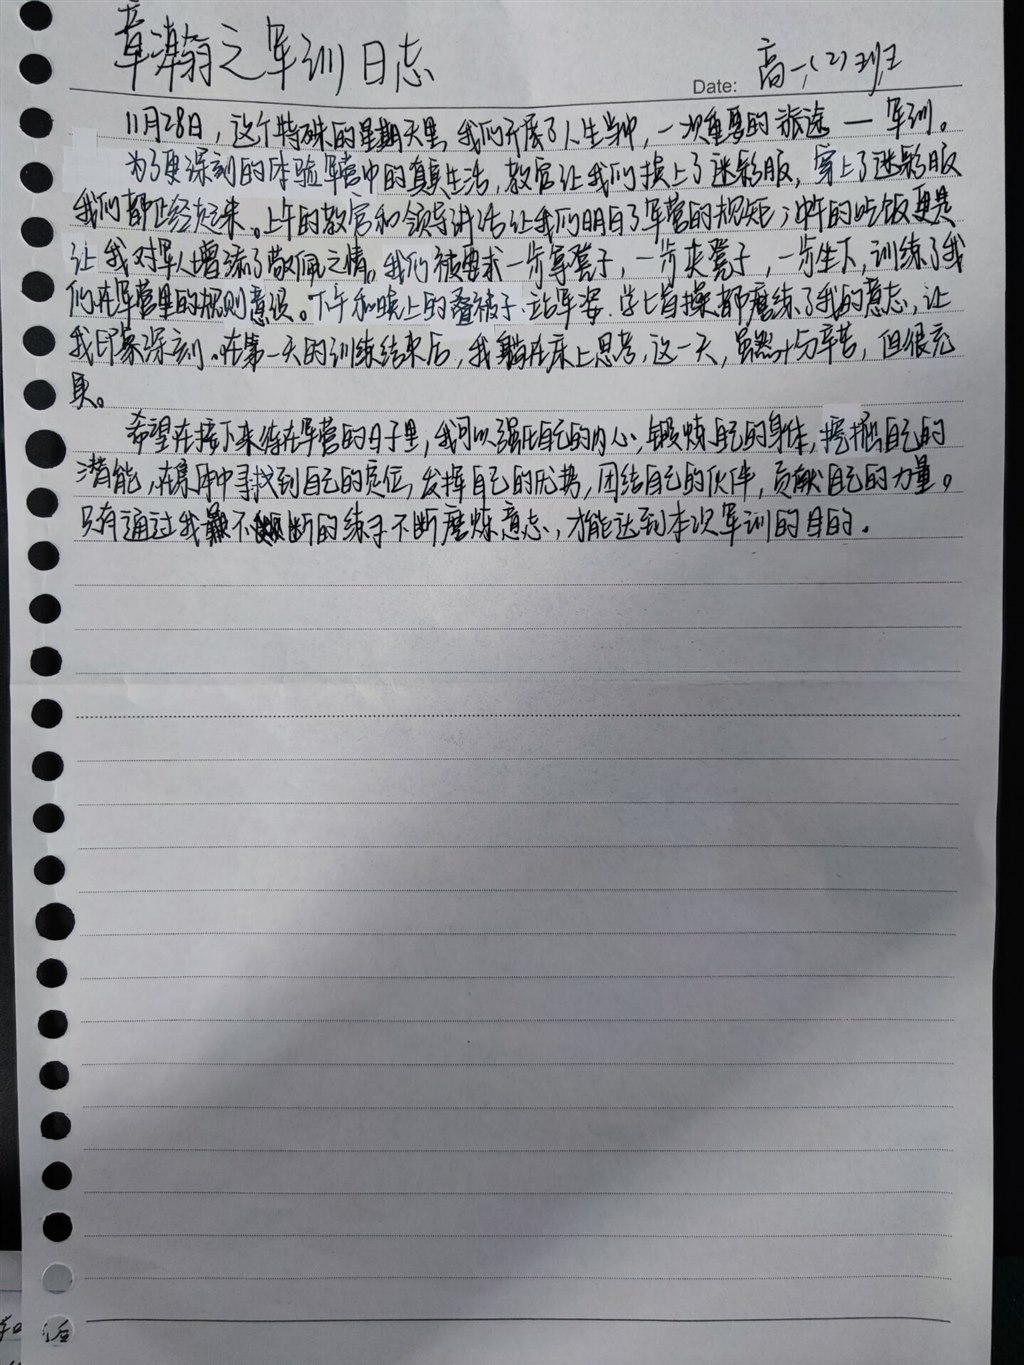 章瀚之军训日志
Date: 高一(2)班
11月28日，这个特殊的星期天里，我们开展了人生当中，一次重要的旅途—军训。
为了更深刻的体验军营中的真实生活，教官让我们换上了迷彩服，穿上了迷彩服
我们都正经起来。上午的教官和领导讲话让我们明白了军营的规矩；中午的吃饭更是
让我对军人增添了敬佩之情。我们被要求一步拿凳子，一步夹凳子，一步坐下，训练了我
们在军营里的规则意识。下午和晚上的叠被子、站军姿、学匕首操都磨练了我的意志，让
我印象深刻。在第一天的训练结束后，我躺在床上思考，这一天，虽然十分辛苦，但很充
实。
希望在接下来待在军营的日子里，我可以强压自己的内心，锻炼自己的身体，挖掘自己的
潜能，在集体中寻找到自己的定位，发挥自己的优势，团结自己的伙伴，贡献自己的力量。
只有通过我不断的练习不断磨炼意志，才能达到本次军训的目的。